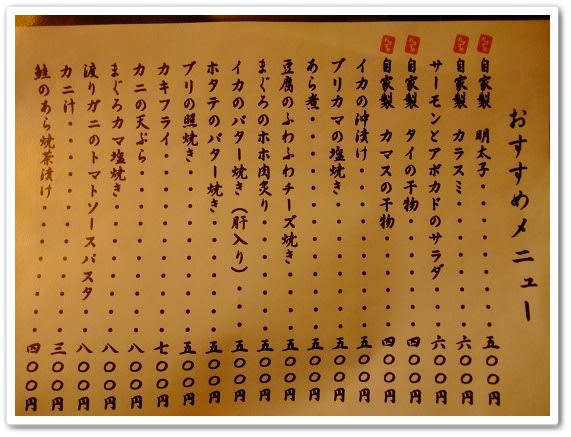 おすすめメニュー
自家製 明太子・・・・・・・・・五〇〇円
自家製 カラスミ・・・・・・・・六〇〇円
サーモンとアボカドのサラダ・・・六〇〇円
自家製 タイの干物・・・・・・・四〇〇円
自家製 カマスの干物・・・・・・四〇〇円
イカの沖漬け・・・・・・・・・・五〇〇円
ブリカマの塩焼き・・・・・・・・五〇〇円
あら煮・・・・・・・・・・・・・五〇〇円
豆腐のふわふわチーズ焼き・・・・五〇〇円
まぐろのホホ肉炙り・・・・・・・五〇〇円
イカのバター焼き(肝入り)・・・五〇〇円
ホタテのバター焼き・・・・・・・五〇〇円
ブリの照焼き・・・・・・・・・・五〇〇円
カキフライ・・・・・・・・・・・七〇〇円
カニの天ぷら・・・・・・・・・・八〇〇円
まぐろカマ塩焼き・・・・・・・・八〇〇円
渡りガニのトマトソースパスタ・・八〇〇円
カニ汁・・・・・・・・・・・・・三〇〇円
鮭のあら焼茶漬け・・・・・・・・四〇〇円